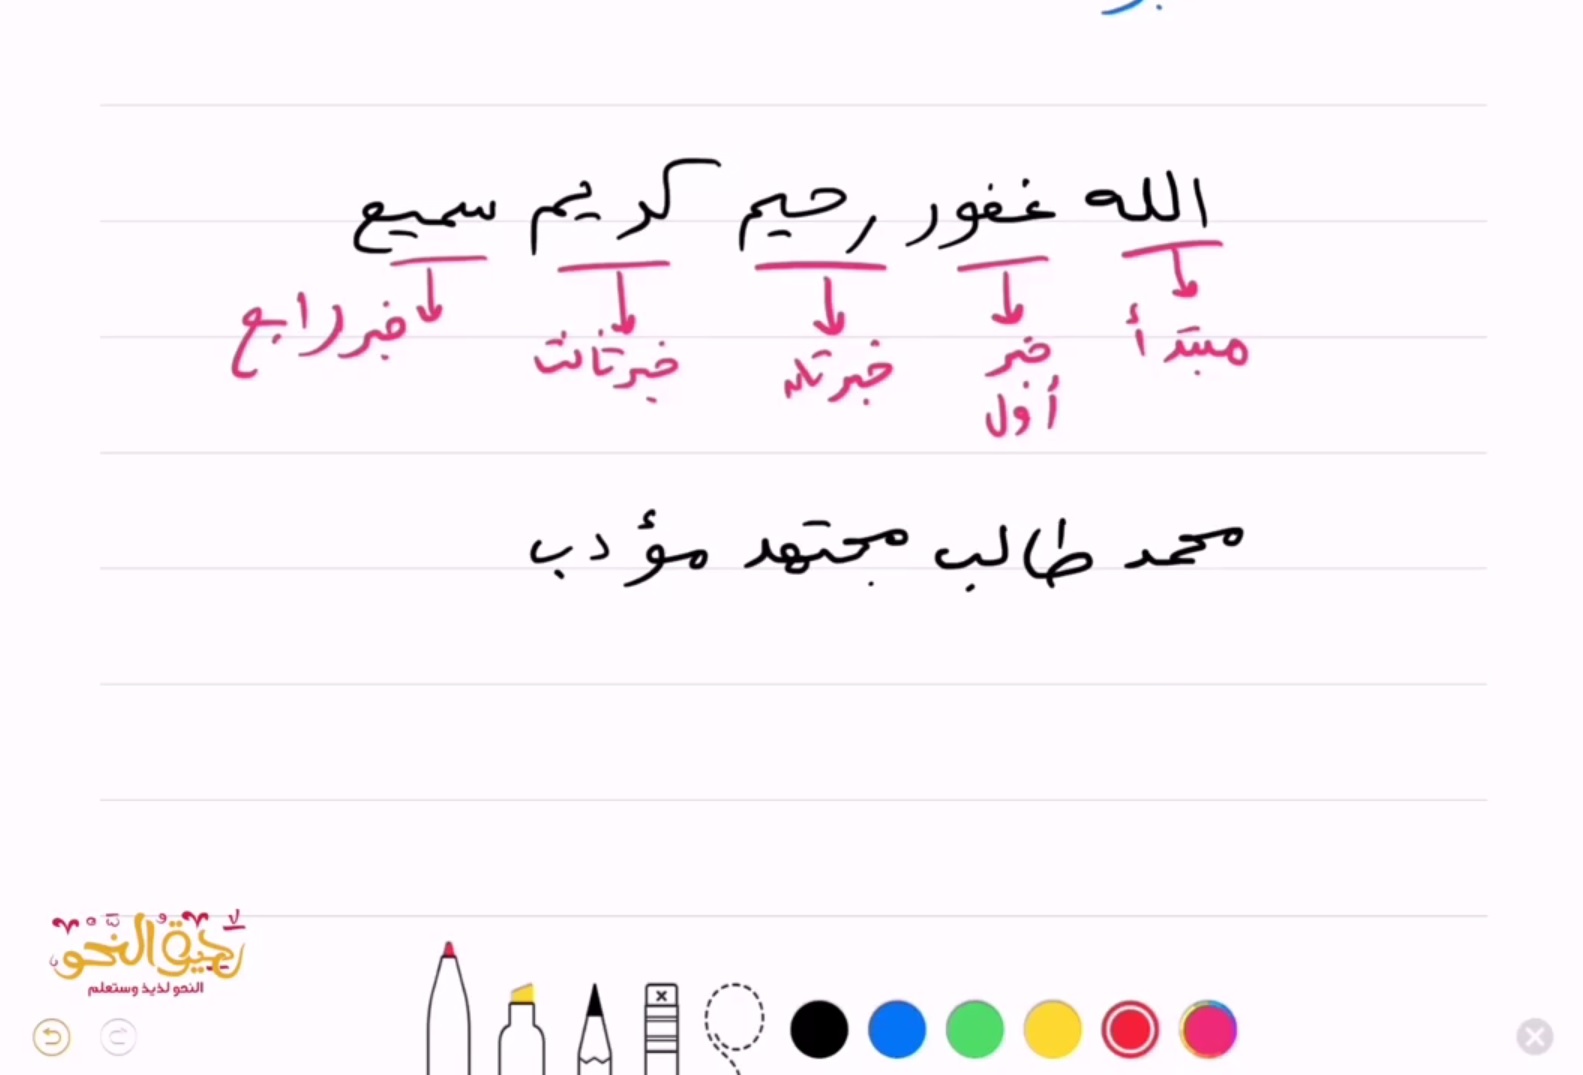 الله غفور رحيم كريم سميع
مبتدأ خبر أول خبر ثان خبر ثالث خبر رابع
محمد طالب مجتهد مؤدب
رحيق النحو
النحو لذيذ وستعلم